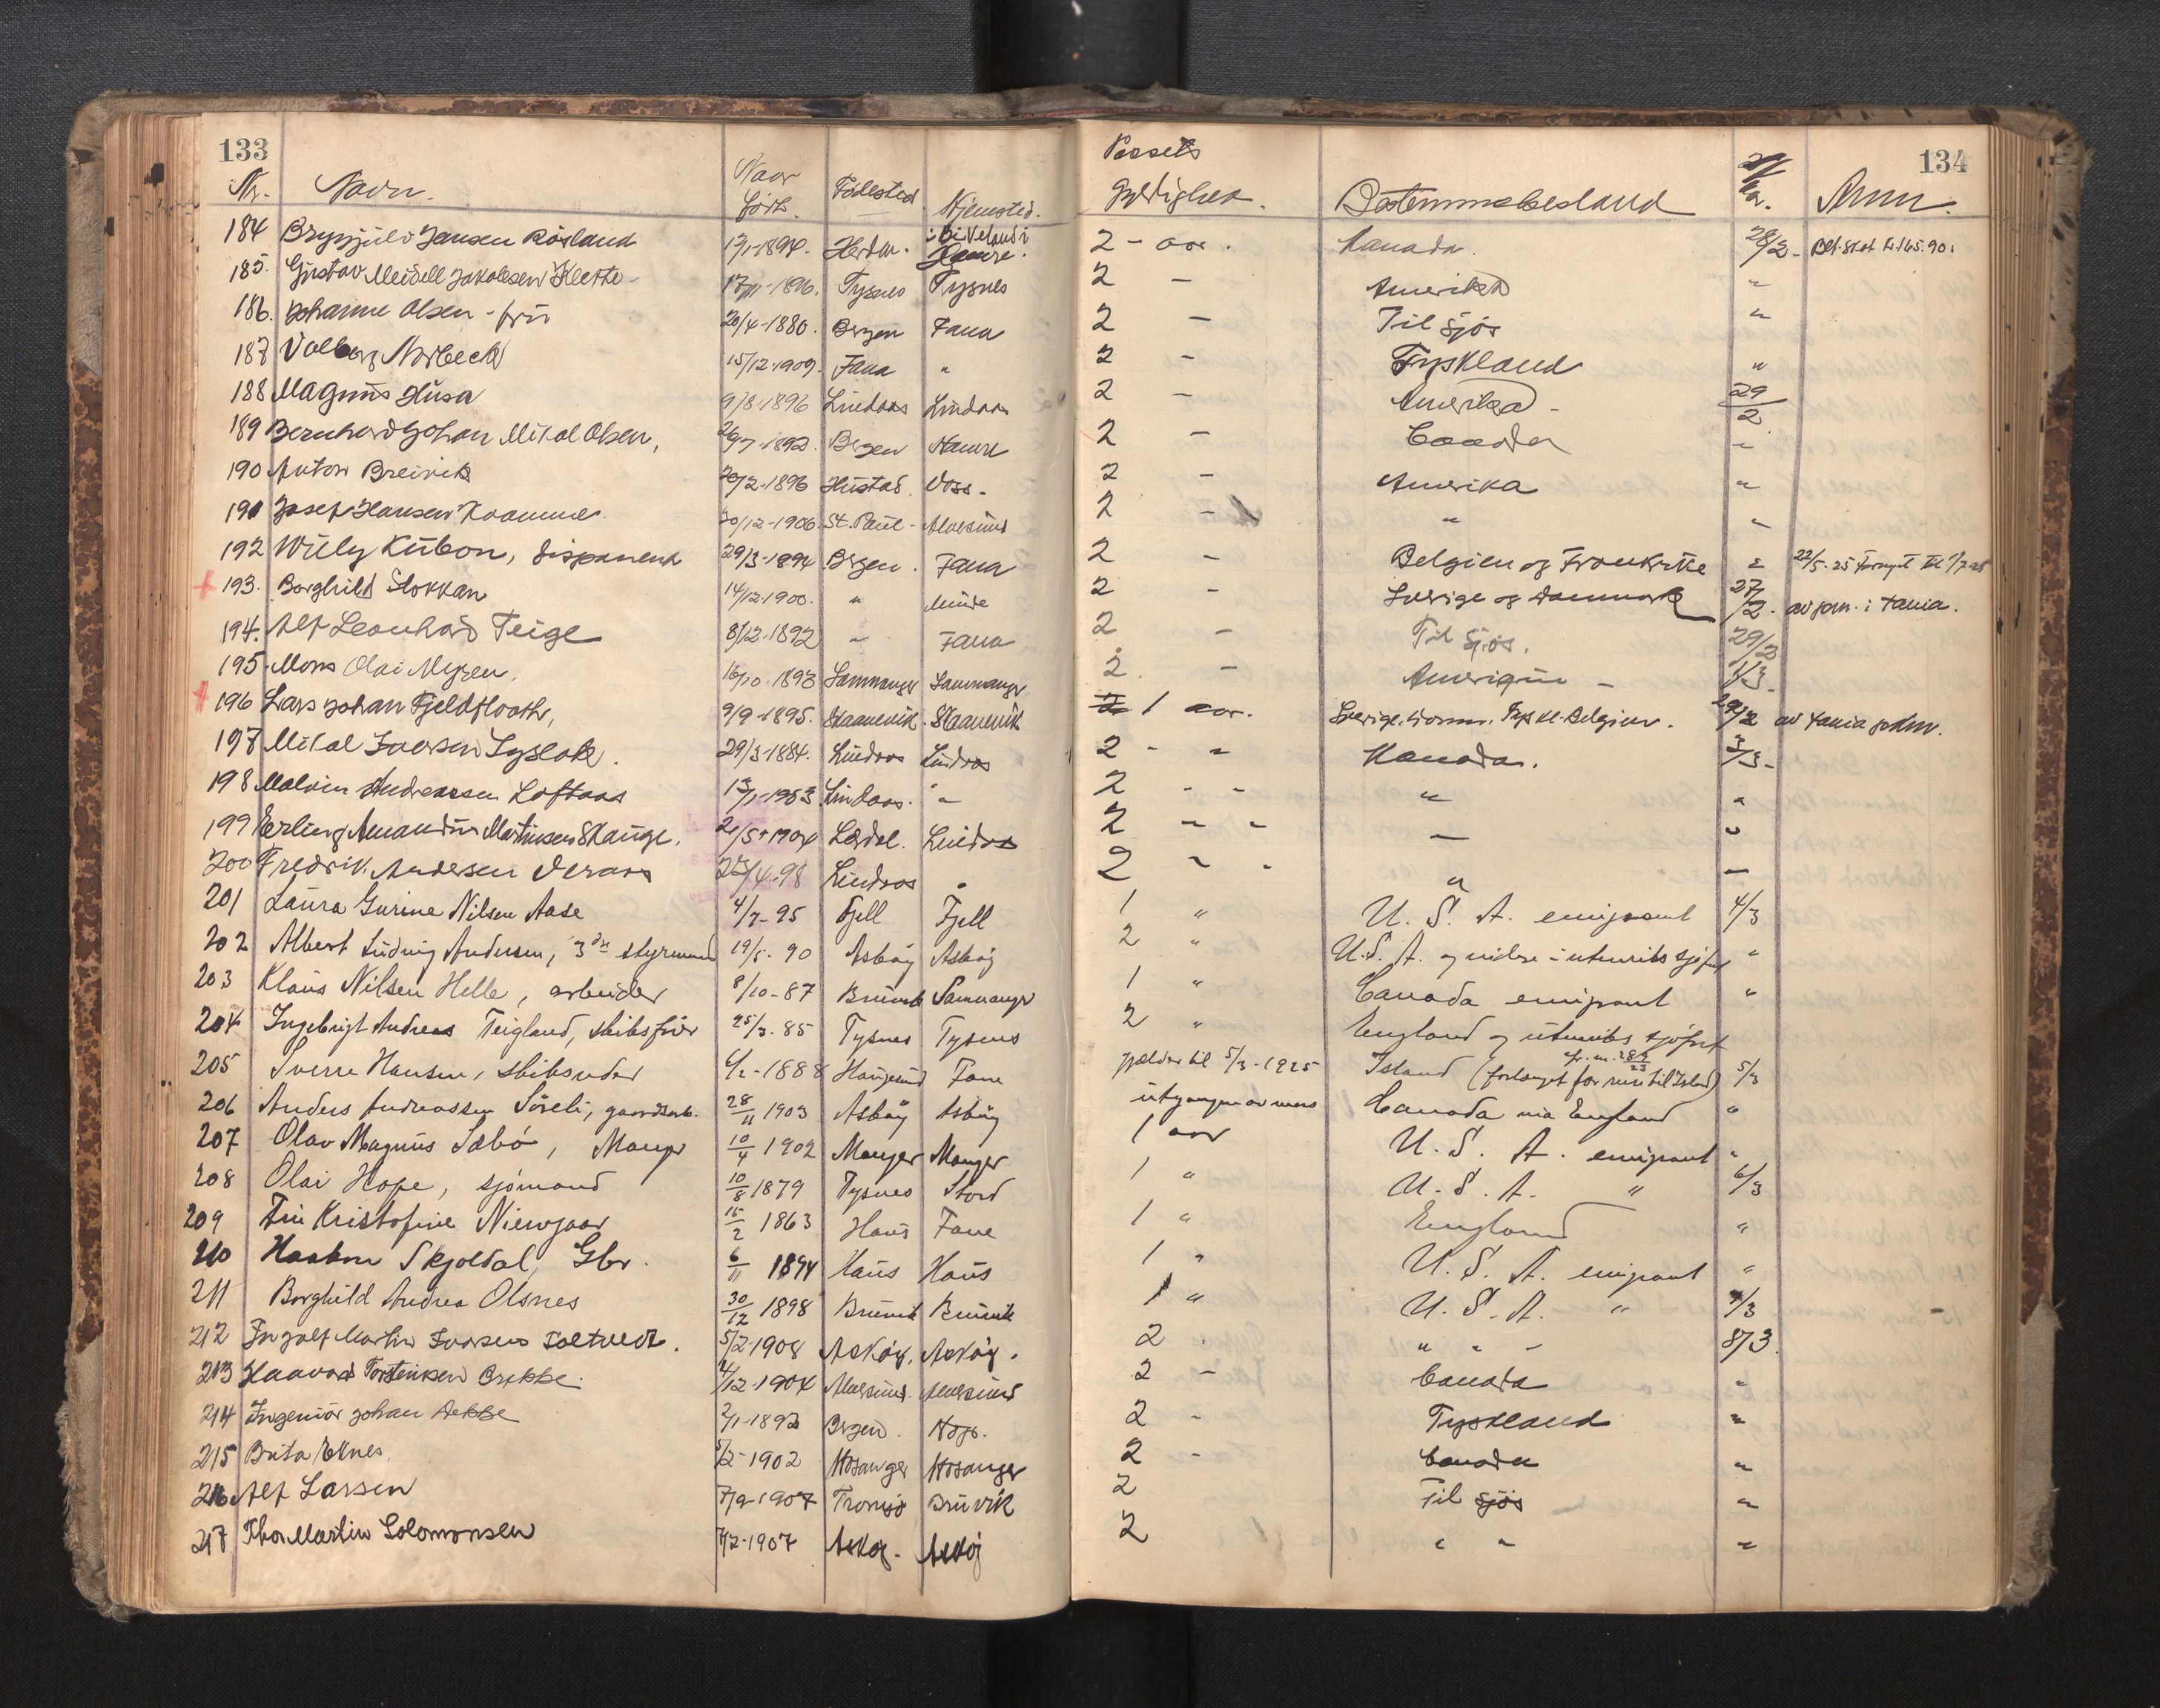 133
Nr. Navn. Naar født. Fødested Hjemsted. Passets gyldighet. Bestemmelsesland Anm. 134
184 Brynjulv Jansen Røsland 1894. Herdla. Hamre. 2 - aar. Canada. 28/2 -
185. Gustav Meidell Jakobsen Klette - 1896. Tysnes Tysnes 2 - Amerika "
186. Johanne Olsen - frü 20/4-1880. Bergen Fana 2 - Til sjøs "
187 Valborg Norbeck 15/12-1909. Fana " 2 - Tyskland "
188 Magnus Husa 9/8-1896 Lindaas Lindaas 2 - Amerika - 29/2
189 Bernhard Johan Mikal Olsen, 26/7-1892. Bergen Hamre 2 - Canada "
190 Anton Breivik 1896 Hustad. Voss. 2 - Amerika "
191 Josef Hansen Kaamme. 20/12-1906. St. Paul - Alversund 2 - " "
192 Willy Kubon, disponent 29/3-1894 Bergen. Fana 2 - Belgien og Frankrike " 22/5-25 Fornyet til
193. Borghild Stokkan 14/12-1900. " Minde 2 - Sverige og Danmark 27/2. av pm. i Fana.
194. Alf Leonhard Teige 8/12-1892 " Fana 2 - Til sjøs. 29/2
195. Mons Olai Nygen. 16/10-1893 Samnanger Samnanger 2. - 1/3.
196 Lars Johan Fjeldflaath, 9/9-1895. Skaanevik. Skaanevik 1 aar. Sverige. Danm. Tyskl. Belgien. 29/2 av Fana
197 Mikal Iversen 29/3-1884. Lindaas Lindaas 2 - " Kanada. 3/3 -
198 Malvin Andreassen Loftaas Lindaas. " 2 - - " "
199 Erling Amandus Martinsen Skauge. 1904 Lærdal. Lindaas 2 " " — "
200 Fredrik Andersen 25/4-98 Lindaas " 2 " - " —
201 Laura Gurine Nilsen Aase 4/7-95 Fjell Fjell 1 " U. S. A. emigrant 4/3
202 Albert Ludvig Andersen, 3die styrmand 19/5-90 Askøy Askøy 2 " U.S. A. og videre i utenriks sjøfart "
203 Klaus Nilsen Helle, arbeider 8/10-87 Bruvik Samnanger 1 " Canada emigrant "
204 Ingebrigt Andreas Teigland, skibsfører 25/3-85 Tysnes Tysnes 2 " England og utenriks sjøfart
205 Sverre Hansen, skibsreder 1888 Haugesund Fane gjelder til 5/3-1925 Island (forlenget for reise til Island) 5/3
206 Anders Andreassen Søreli, gaardsarb. 28/11 1903 Askøy Askøy utgangen av mars Canada via England "
207 Olav Magnus Sæbø, Manger 10/4 1902 Manger Manger 1 aar U. S. A. emigrant "
208 Olai Hope, sjømand 10/8 1879 Tysnes Stord 1 " U. S. A. " 6/3
209 Fru Kristofine Niewejaar 15/2 1863 Haus Fane 1 " England "
210 Haakon Skjoldal, Gbr. 6/11 1894 Haus Haus 1 " U. S. A. emigrant "
211 Borghild Andrea Olsnes 30/12 1898 Bruvik Bruvik 1 " U. S. A. " 7/3
212 Ingolf Martin Iversen Toltvedt. 5/2-1908 Askøy. Askøy. 2 . " " - 8/3.
213 Haavard Torsteinsen Brekke. 1904 Alversund. Alversund 2 - Canada "
214 Ingeniør Johan Aekke 2/1-1892 Bergen. Hop. 2 - Tyskland "
215 Brita Eknes. 5/2-1902 Hosanger Hosanger 2 - Canada "
216 Alf Larsen 7/9-1907 Tromsø Bruvik 2 Til sjøs "
217 Thor Martin Solomonsen 7/2-1907 Askøy. Askøy 2 " " "